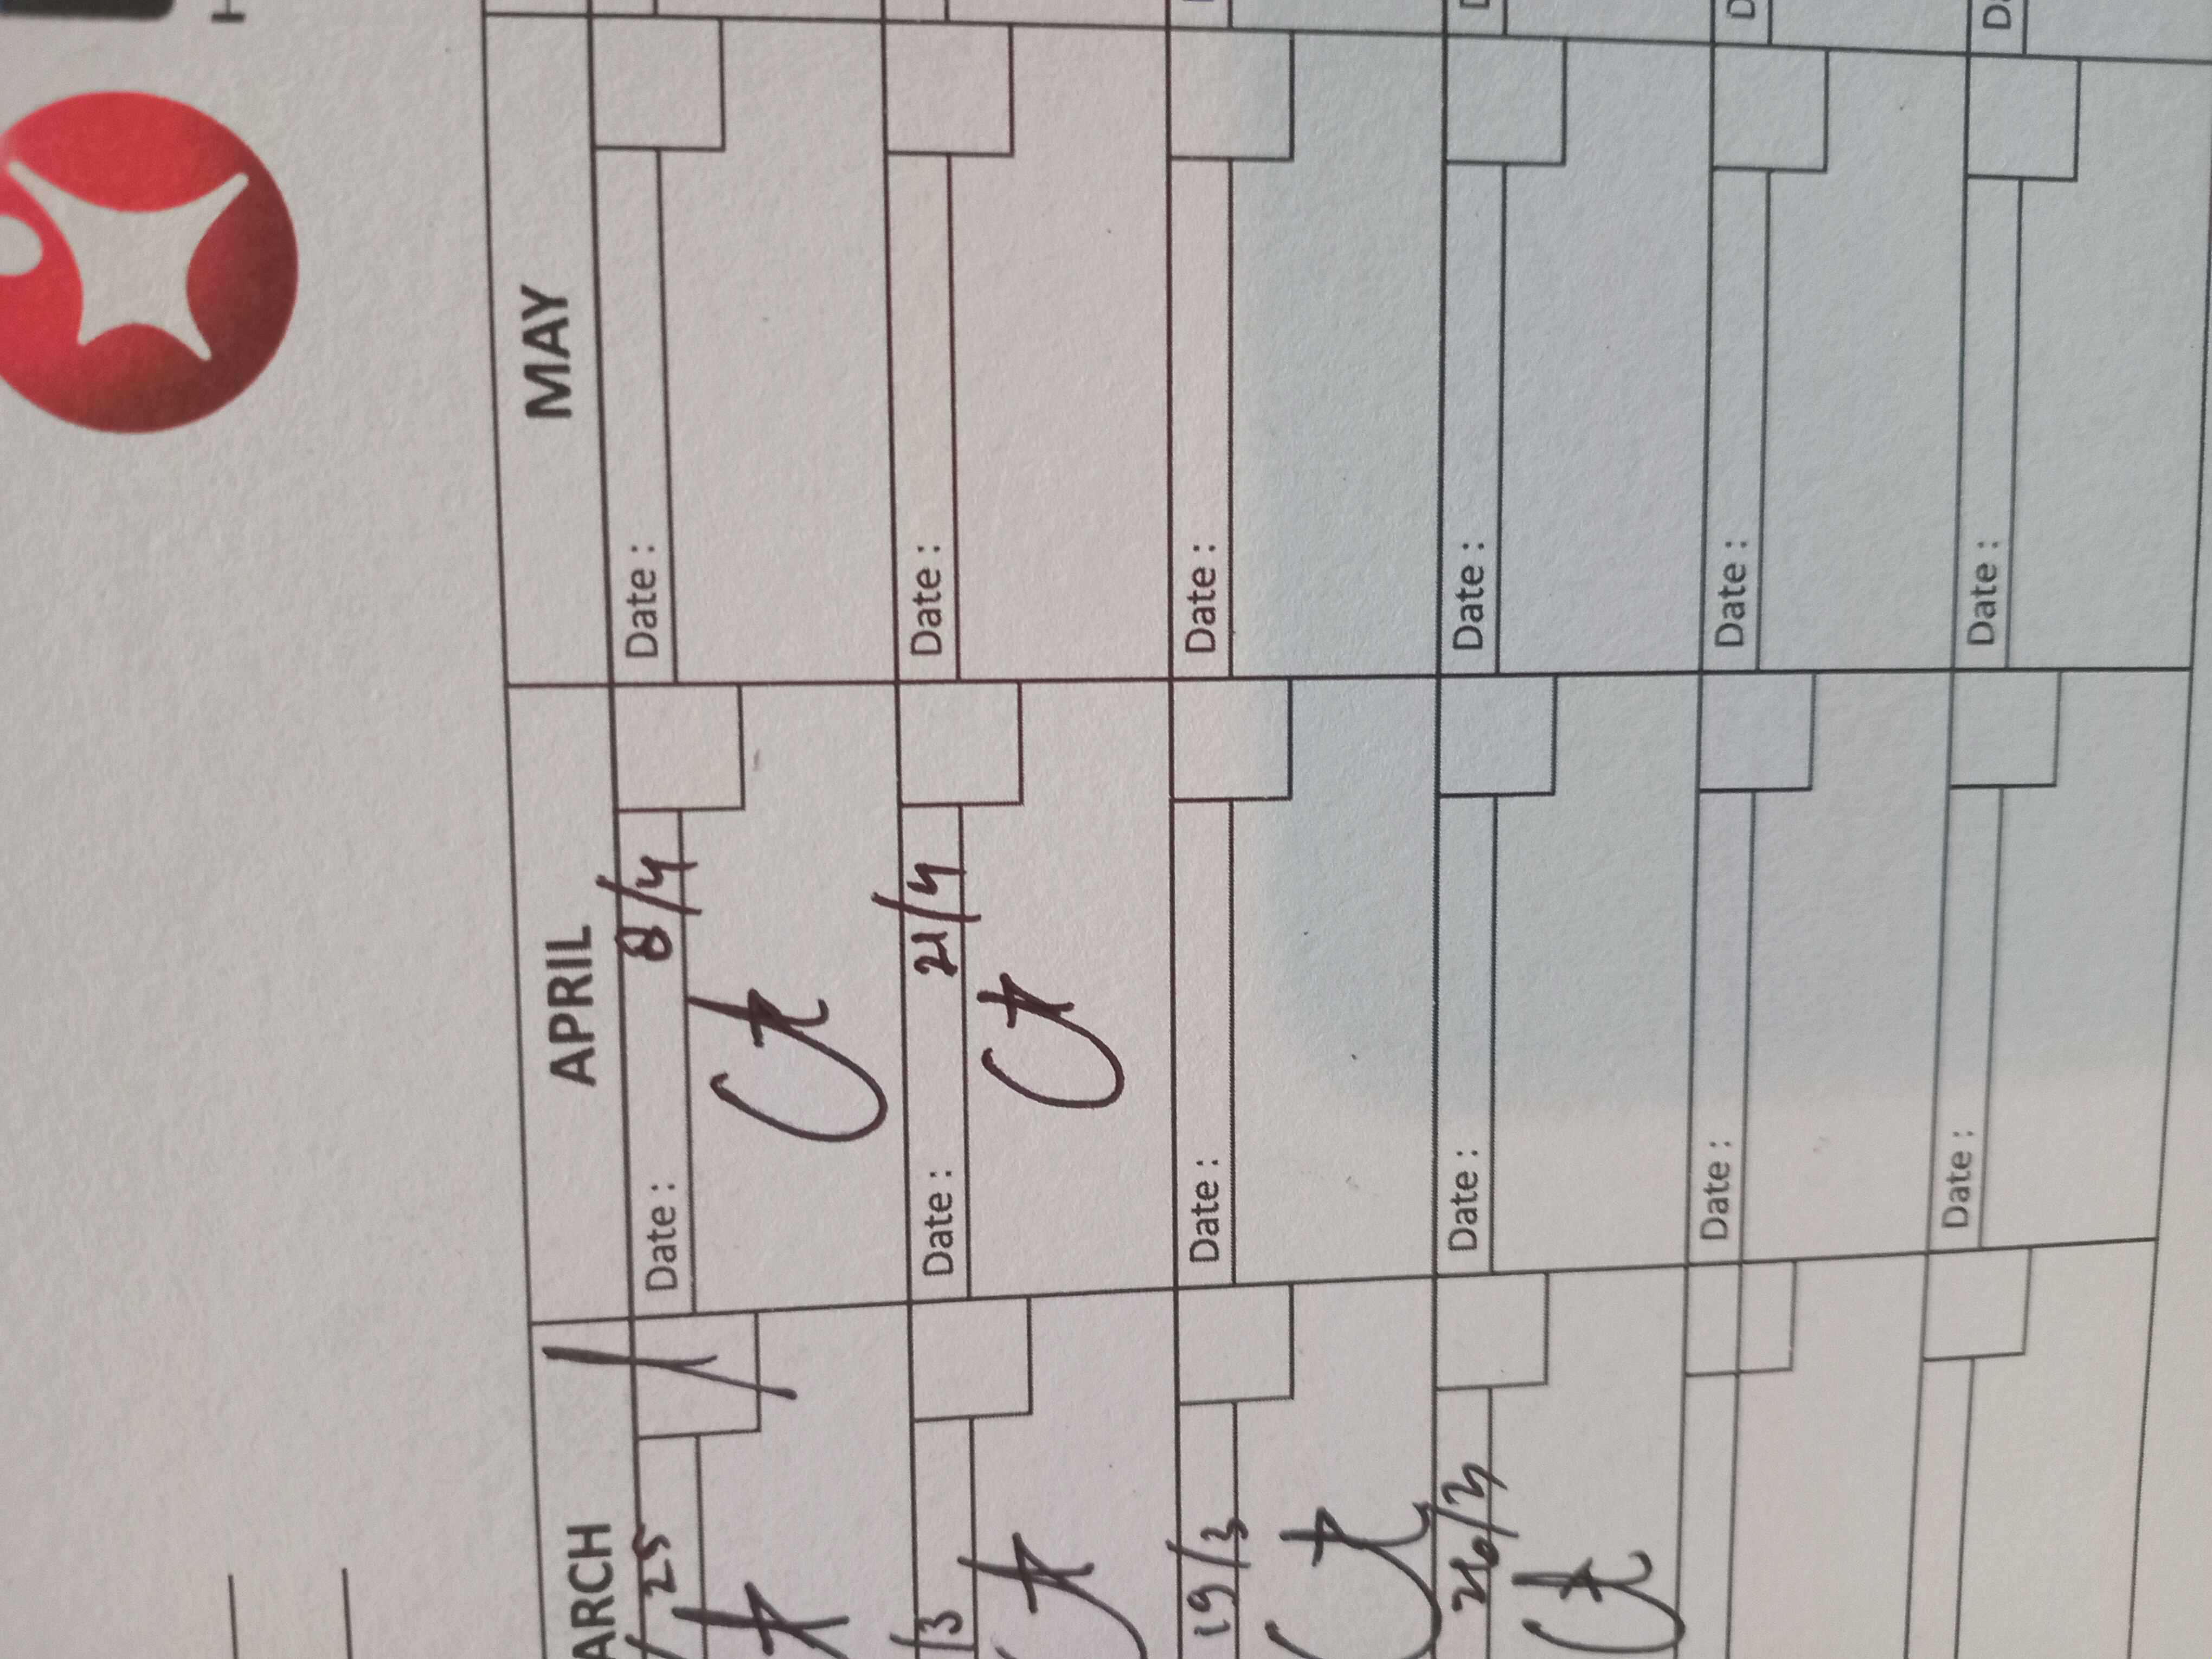 ARCH APRIL MAY
25 Date : 8/4 Date :
/3 Date : 21/4 Date :
19/3 Date : Date :
26/3 Date : Date :
Date : Date :
Date : Date :